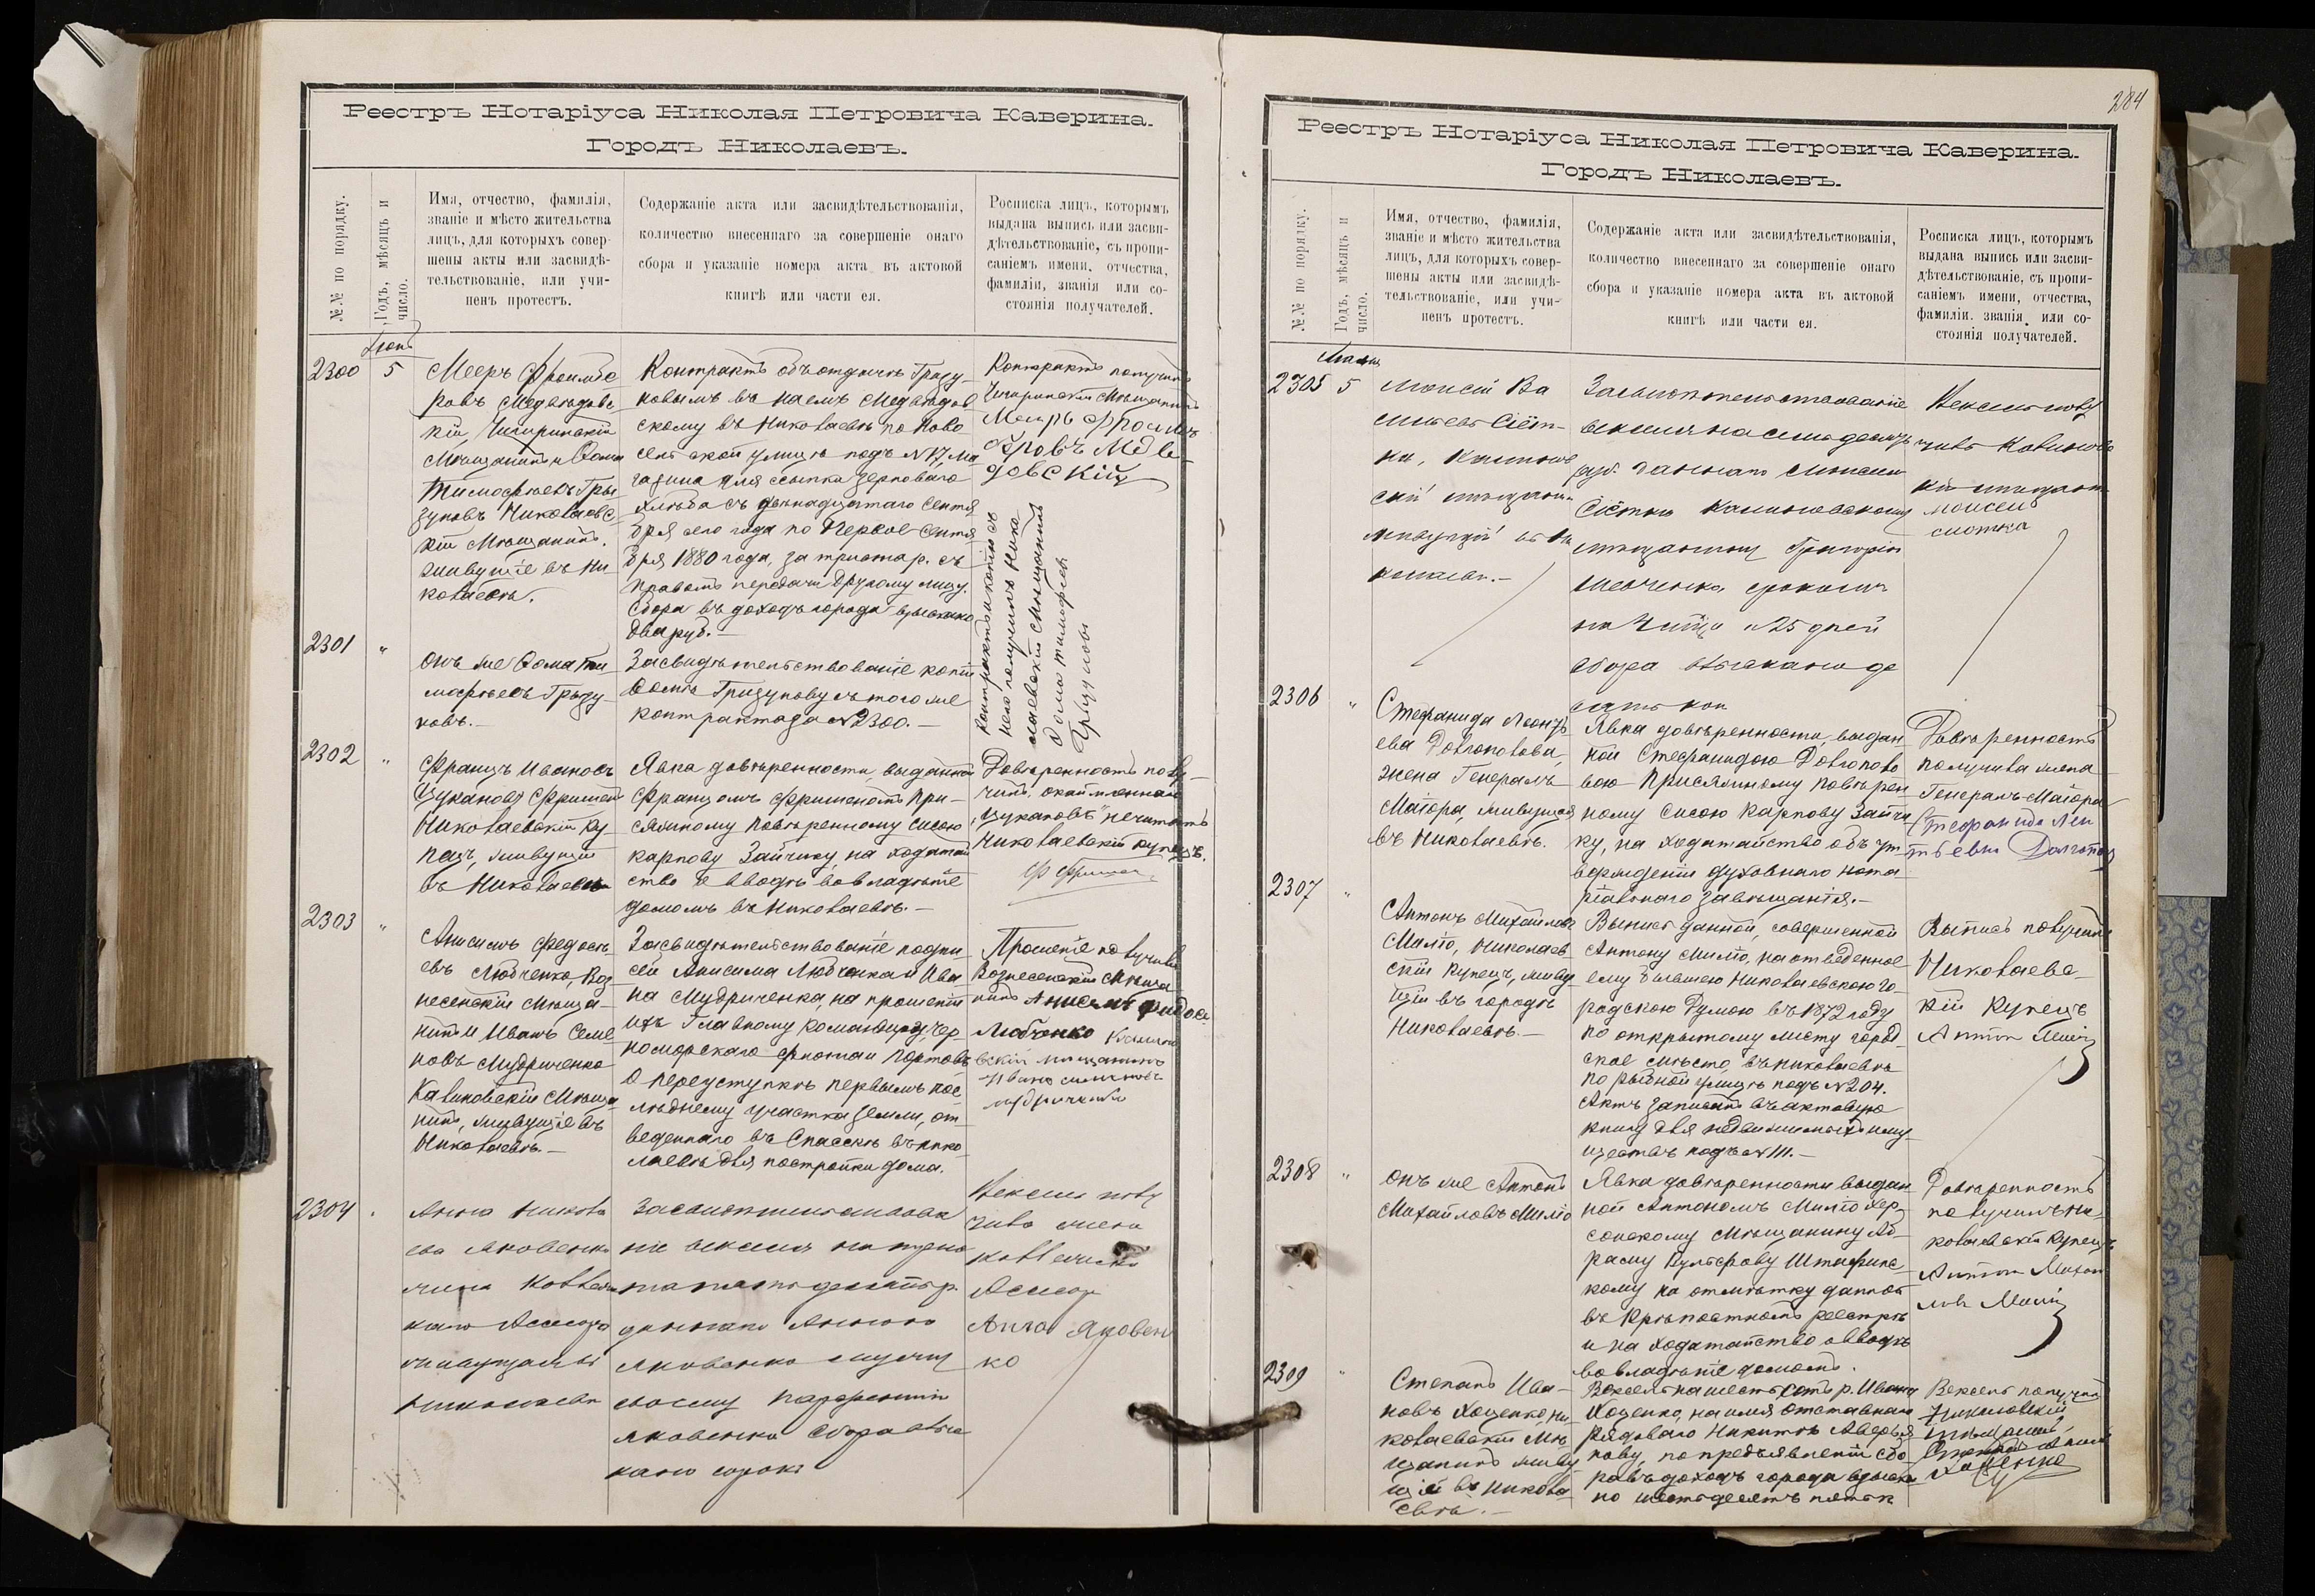 Реестръ Нотаріуса Николая Петровича Каверина.
Городъ Николаевъ.
№№ по порядку.
Годъ, мѣсяцъ и
число.
Имя, отчество, фамилія,
званіе и мѣсто жительства
лицъ, для которыхъ совер-
шены акты или засвидѣ-
тельствованіе, или учи-
ненъ протестъ.
Содержаніе акта или засвидѣтельствованія,
количество внесеннаго за совершеніе онаго
сбора и указаніе номера акта въ актовой
книгѣ или части ея.
Росписка лицъ, которымъ
выдана выпись или засви-
дѣтельствованіе, съ пропи-
саніемъ имени, отчества,
фамиліи, званія или со-
стоянія получателей.
2300
5
Мееръ Фроимбе
ровъ Медвѣдовс
кій, Чигиринскій
Мѣщанинъ и Ѳома
Тимофѣевъ Гры
зуновъ Николаевс
кій Мѣщанинъ,
живущіе въ Ни
колаевѣ.
Контрактъ объ отдачѣ Грызу-
новымъ въ наемъ Медвѣдов
скому въ Николаевѣ по Ново
сельской улицѣ подъ №17, ма
газина для ссыпки зерноваго
хлѣба съ двѣнадцатаго Сентя
бря сего года по Первое Сентя
бря 1880 года, за триста р. съ
правомъ передачи другому лицу.
Сбора въ доходъ города взыскано
два руб.-
Контрактъ получилъ
Чигиринскій Мѣщанинъ
Меиръ Фроимбе
ровъ Медве
довскій
2301
"
Онъ же Ѳома Ти
мофѣевъ Грызу-
новъ.-
Засвидѣтельствованіе копіи
Ѳомѣ Грызунову съ того же
контракта за №2300.-
Контрактъ и копію съ
него получилъ Нико
лаевскій Мѣщанинъ
Фома тимофеев
Грызунов
2302
"
Францъ Ивановъ
Цукановъ Фришенъ
Николаевскій Ку
пецъ, живущій
въ Николаевѣ
Явка довѣренности, выданной
Францомъ Фришеномъ При-
сяжному Повѣренному Сысою
Карпову Зайчику, на ходатай
ство о вводѣ во владѣніе
домомъ въ Николаевѣ.-
Довѣренность полу-
чилъ
"Цукановъ" не читать
Николаевскій Купецъ.
2303
"
Анисимъ Федосѣ
евъ Любченко, Воз
несенскій Мѣща-
нинъ и Иванъ Семе
новъ Мудриченко
Калиновскій Мѣща
нинъ, живущіе въ
Николаевѣ.-
Засвидѣтельствованіе подпи
сей Анисима Любченка и Ива
на Мудриченка, на прошеніи
ихъ Главному Командиру Чер
номорскаго флота и Портовъ
о переуступкѣ первымъ пос
лѣднему участка земли, от
веденнаго въ Спасскѣ въ Нико
лаевѣ для постройки дома.
Прошеніе получилъ
Вознесенскій Мѣща
нинъ Анисимъ Федос
Любченко Калинов
вскій мещанинъ
Иванъ семеновъ
мудриченко
2304
Анна Никола
ева Яковенко
жена Коллежс
каго Асессора
живущая въ
Николаевѣ
Засвидѣтельствова
ніе векселя на
пятьдесятъ р.
даннаго Анною
Яковенко мужу
своему Парфентію
Яковенко Сбора взыс
кано сорокъ
Вексель полу
чила жена
Коллежскаго
Асессор
Анна Яковен
ко
284
Реестръ Нотаріуса Николая Петровича Каверина.
Городъ Николаевъ.
№№ по порядку.
Годъ, мѣсяцъ и
число.
Имя, отчество, фамилія,
званіе и мѣсто жительства
лицъ, для которыхъ совер-
шены акты или засвидѣ-
тельствованіе, или учи-
ненъ протестъ.
Содержаніе акта или засвидѣтельствованія,
количество внесеннаго за совершеніе онаго
сбора и указаніе номера акта въ актовой
книгѣ или части ея.
Росписка лицъ, которымъ
выдана выпись или засви-
дѣтельствованіе, съ пропи-
саніемъ имени, отчества,
фамиліи, званія или со-
стоянія получателей.
2305
5
Моисей Ва
сильевъ
мѣщанинъ
живущій въ Ни
колаевѣ.-
Засвидѣтельствованіе
векселя на семьдесятъ
руб. даннаго Моисеемъ
мѣщанину Григорію
Шевченко срокомъ
на и 25 дней
сбора взыскано де
сять коп
Вексель полу
чилъ Калиновс
кій мещанин
моисей
сиотка
2306
"
Стефанида Леонть
ева Долгополова,
жена Генералъ
Маіора, живущая
въ Николаевѣ.
Явка довѣренности, выдан
ной Стефанидою Долгополо
вою Присяжному Повѣрен
ному Сысою Карпову Зайчи
ку, на ходатайство объ ут
вержденіи духовнаго нота
ріальнаго завѣщанія.-
Довѣренность
получила жена
Генералъ Маіора
Стефанида Лен
тьевна Долгопол
2307
"
Антонъ Михайловъ
Милю, Николаев
скій Купецъ, живу
щій въ городѣ
Николаевѣ.-
Выпись данной, совершенной
Антону Милю, на отведенное
ему бывшею Николаевскою Го
родскою Думою въ 1872 году
по открытому листу город
ское мѣсто, въ Николаевѣ
по Рыбной улицѣ подъ №204.
Актъ записанъ въ актовую
книгу для недвижимыхъ иму
ществъ подъ №111.-
Выпись получилъ
Николаевс
кій Купецъ
Антон
2308
"
Онъ же Антонъ
Михайловъ Милю
Явка довѣренности выдан
ной Антономъ Милю Хер-
сонскому Мѣщанину Аб-
раму
кому на отмѣтку данной
въ Крѣпостномъ реестрѣ
и на ходатайство о вводѣ
во владѣніе домомъ.
Довѣренность
получилъ Ни
колаевскій Купецъ
Антон Михай
лов
2309
"
Степанъ Ива-
новъ Хоценко, Ни
колаевскій Мѣ
щанинъ живу
щій въ Никола
евѣ.-
Вексель на шестьсотъ р. Ивана
Хоценко, на имя отставнаго
Рядоваго Никиты Авдѣья
нову, по предъявленіи сбо
ра въ доходъ города взыска
но шестьдесятъ пять к
Вексель получил
Николаевскій
мѣщанин
Хоценко